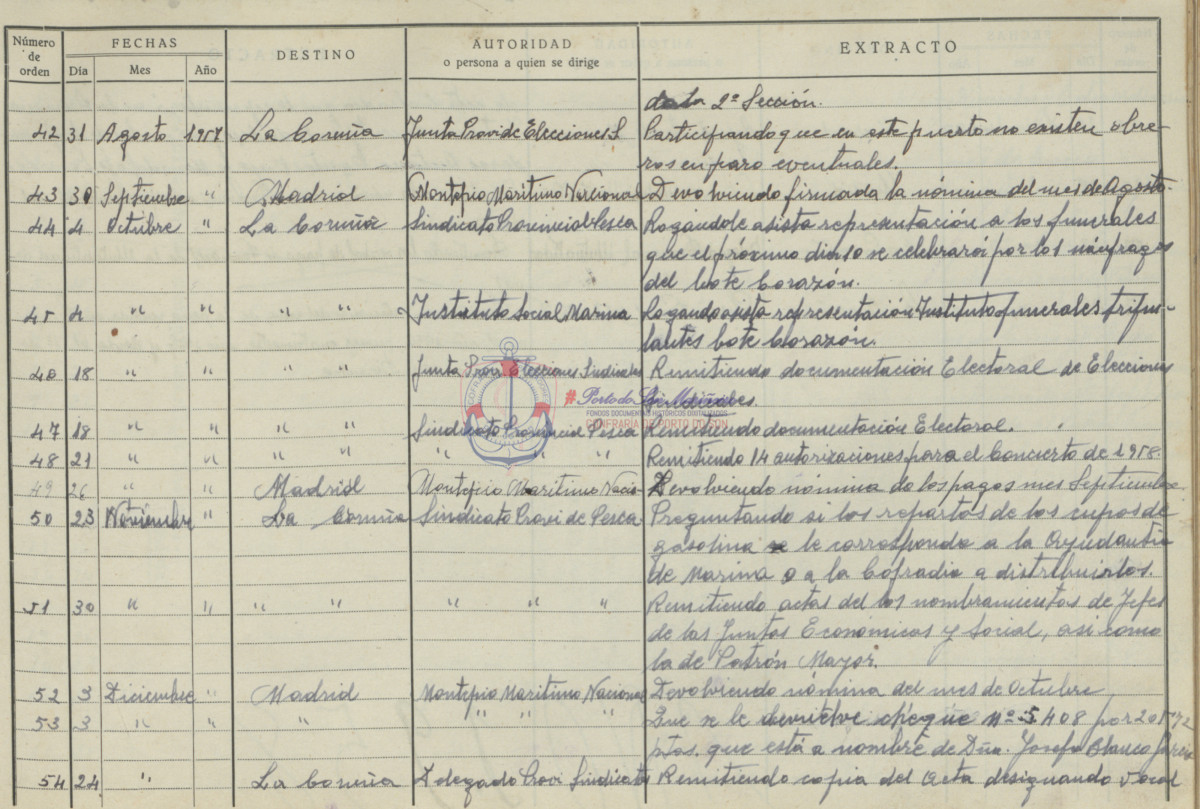 Número de orden FECHAS DESTINO AUTORIDAD o persona a quien se dirige EXTRACTO
Día Mes Año
2ª Sección.
42 31 Agosto 1957 La Coruña Junta Provi de Elecciones S Participando que en este puerto no existen obre-
ros en paro eventuales.
43 30 Septiembre " Madrid Montepio Maritimo Nacional Devolviendo firmada la nómina del mes de Agosto.
44 4 Octubre " La Coruña Sindicato Provincial Pesca Rogandole asista representación a los funerales
que el próximo dia 10 se celebrará por los náufragos
del bote Corazón.
45 4 " " " " Instituto Social Marina Rogando asista representación Instituto funerales tripu-
lantes bote Corazón.
46 18 " " " " Junta Provi Elecciones Sindicales Remitiendo documentación Electoral de Elecciones
Sindicales.
# Porto do Son Mariñeiro
FONDOS DOCUMENTAIS HISTÓRICOS DIGITALIZADOS
CONFRARÍA DE PORTO DO SON
47 18 " " " " Sindicato Provincial Pesca Remitiendo documentación Electoral.
48 21 " " " " " " " Remitiendo 14 autorizaciones para el Concierto de 1958.
49 26 " " Madrid Montepio Maritimo Nacio- Devolviendo nómina de los pagos mes Septiembre
50 23 Noviembre " La Coruña Sindicato Provi de Pesca Preguntando si los repartos de los cupos de
gasolina le corresponde a la Ayudantia
de Marina o a la Cofradia a distribuirlos.
51 30 " " " " " " " Remitiendo actas del los nombramientos de Jefes
de las Juntas Economicas y Social, asi como
la de Patrón Mayor.
52 3 Diciembre " Madrid Montepio Maritimo Nacional Devolviendo nómina del mes de Octubre
53 3 " " " " " " Que se le devuelve cheque nº 5408 por
ptas. que está a nombre de Dña. Josefa Blanco Garcia
54 24 " La Coruña Delegado Provi Sindicatos Remitiendo copia del acta designando vocal